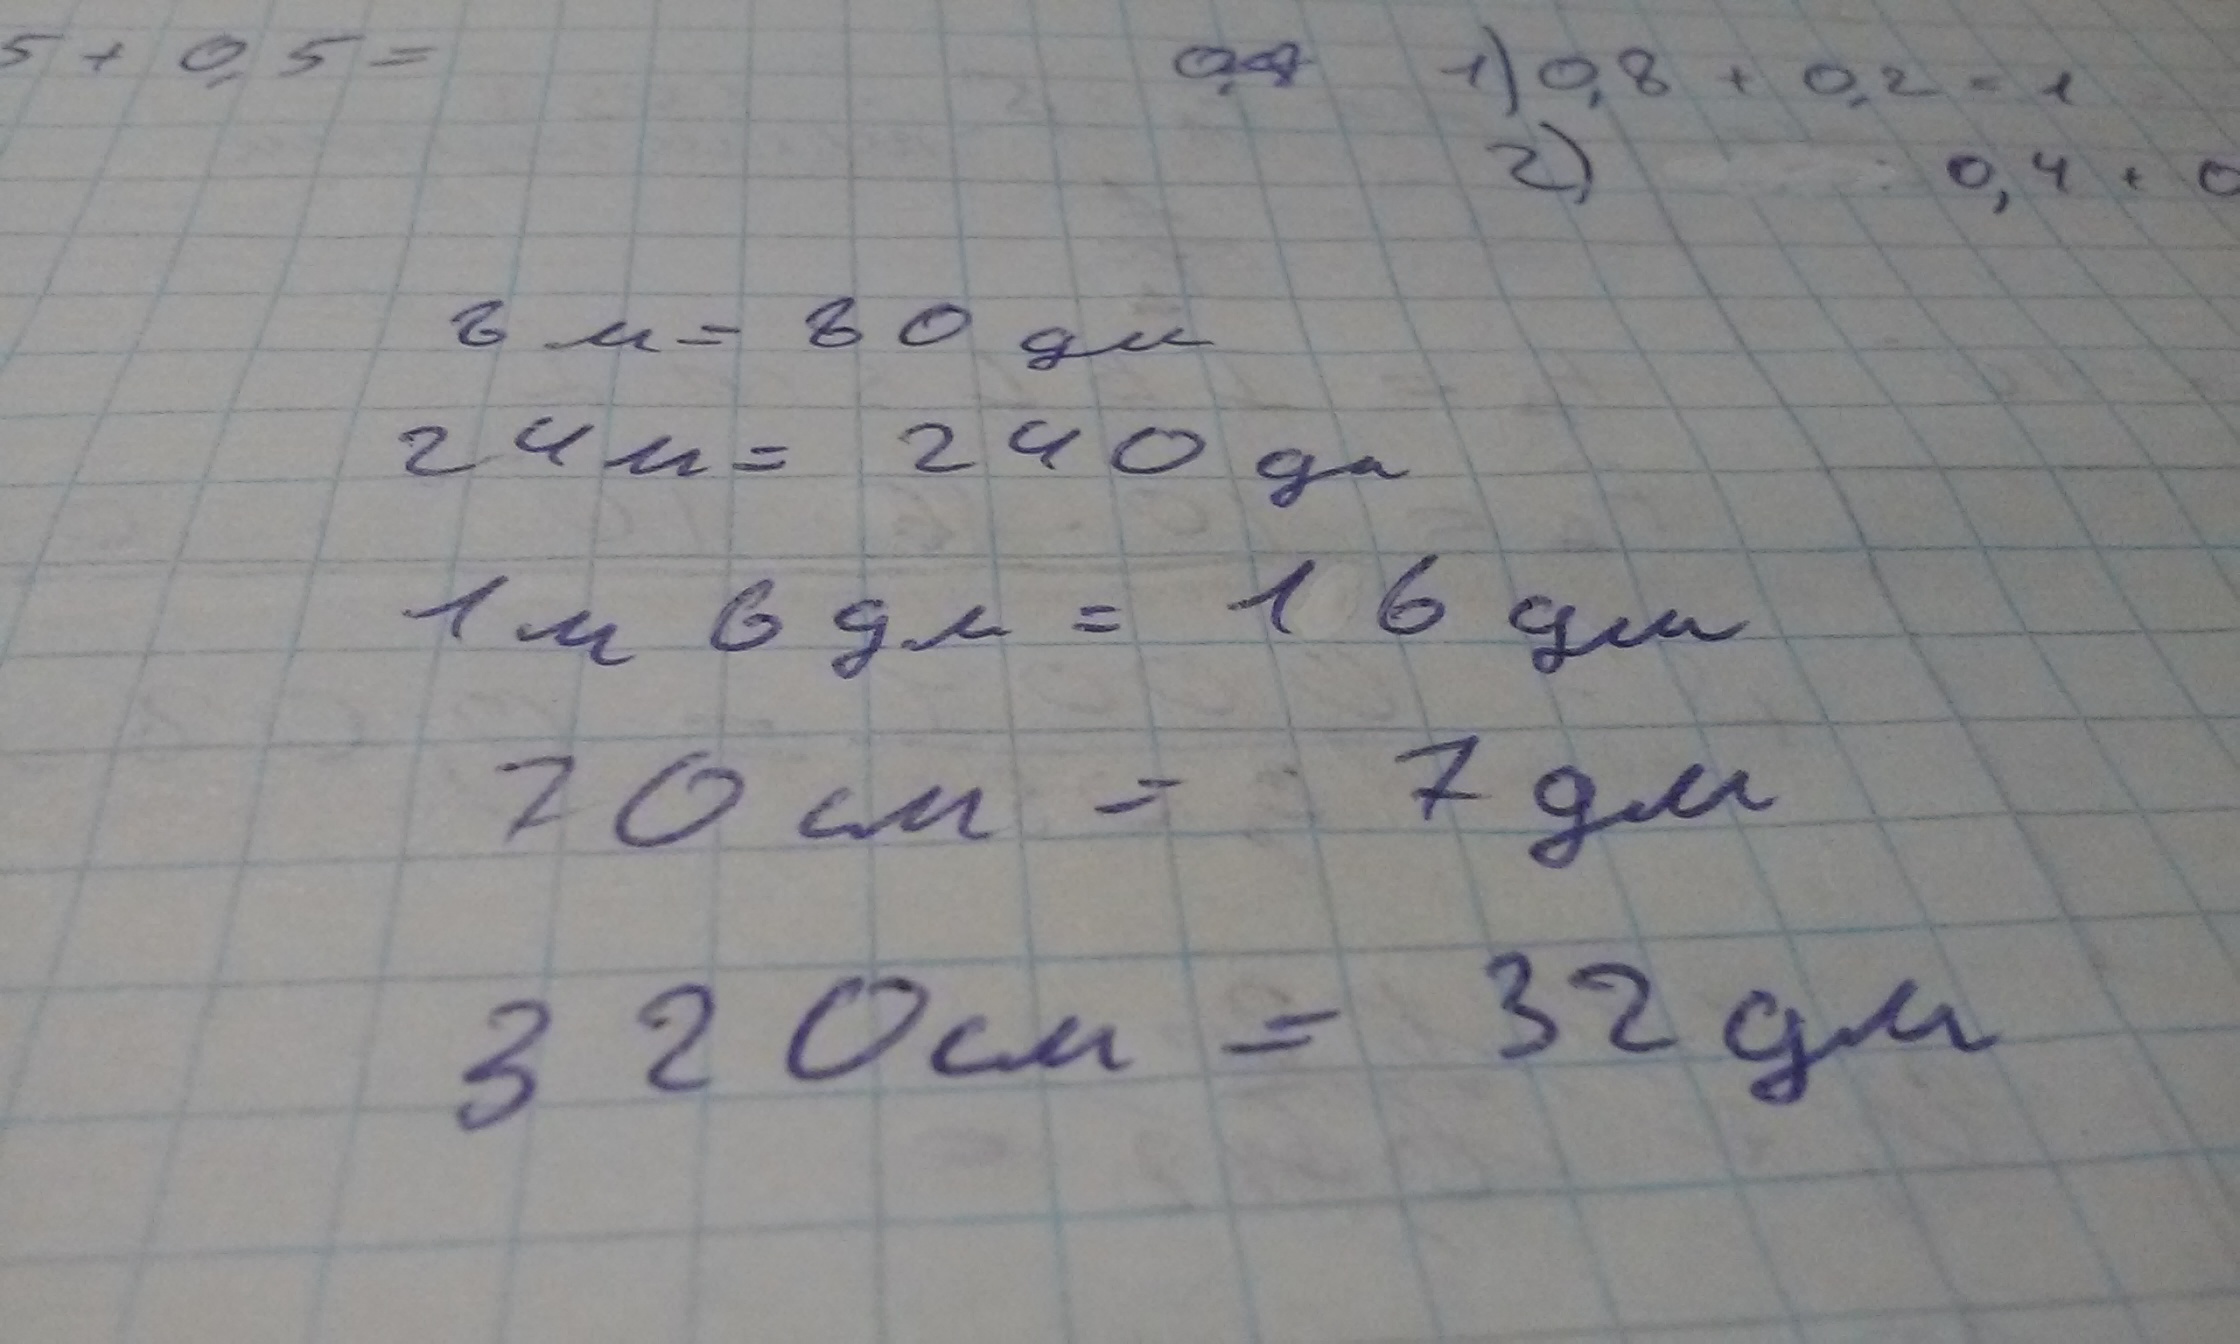 5 + 0,5 =
1) 0,8 + 0,2 = 1
2) 0,4 + 0
8 м = 80 дм
24 м = 240 дм
1 м 6 дм = 16 дм
70 см = 7 дм
320 см = 32 дм